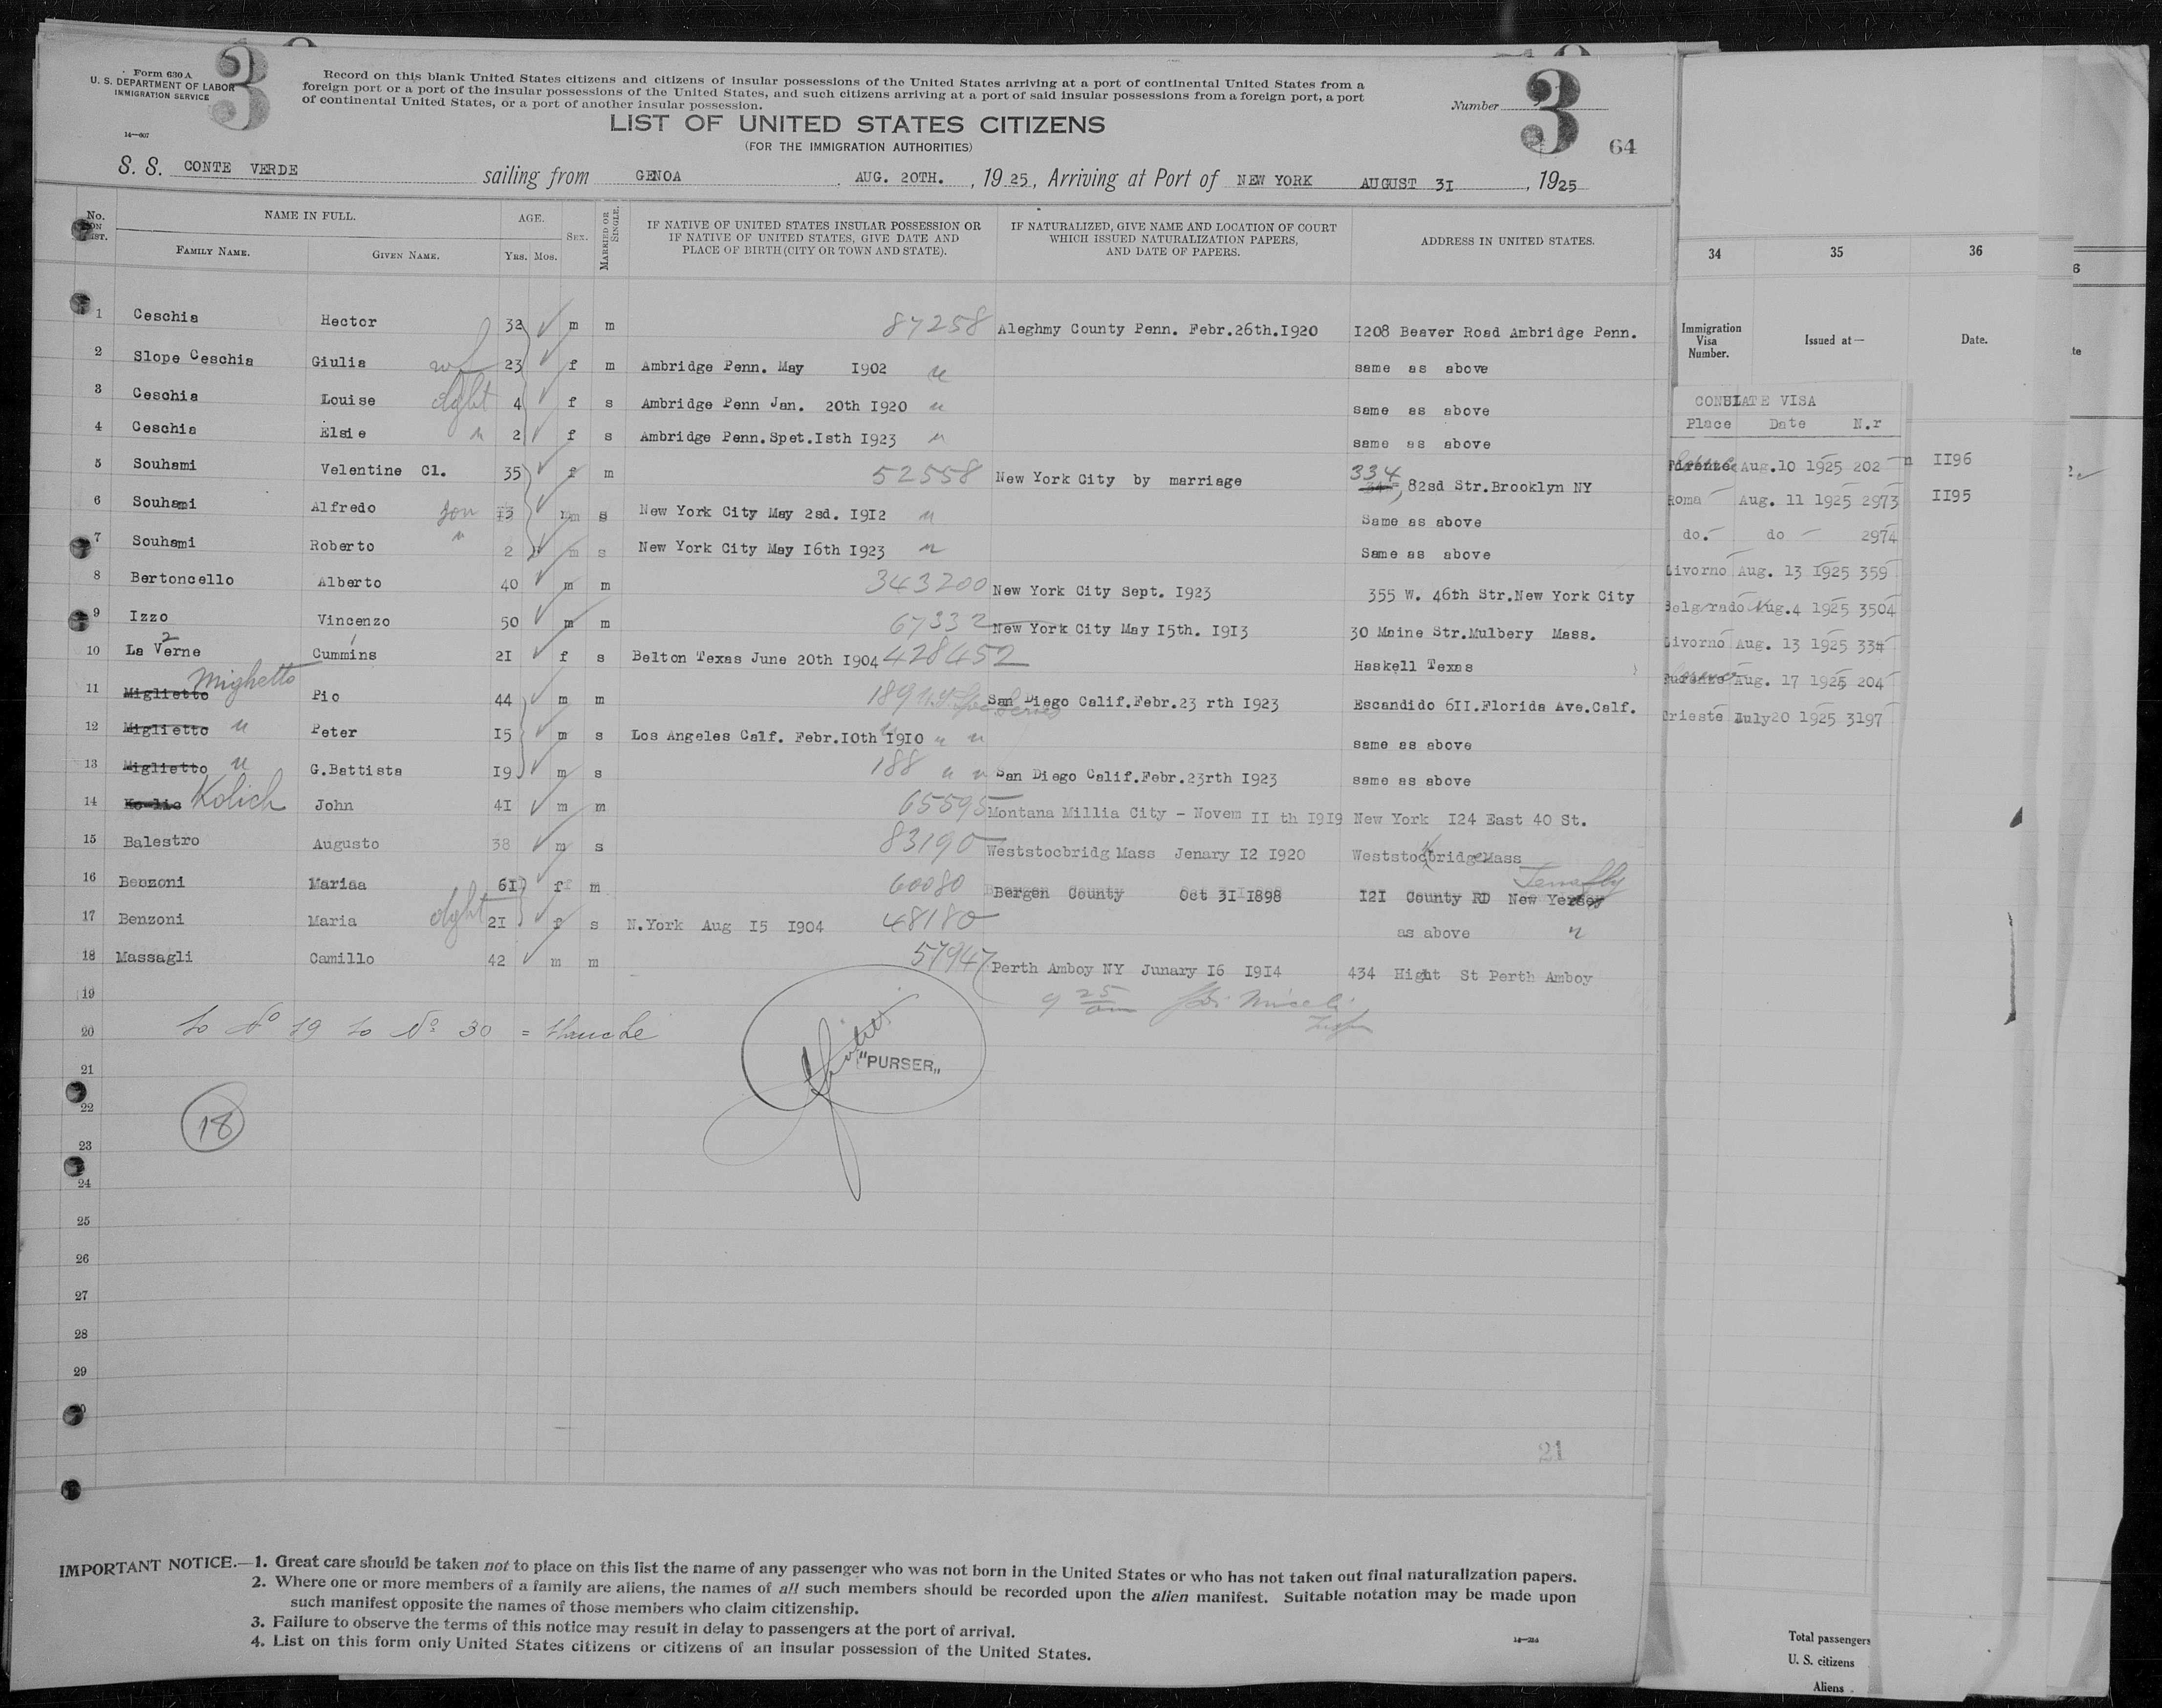 Form 630 A
U. S. DEPARTMENT OF LABOR
IMMIGRATION SERVICE
14—607
3
Record on this blank United States citizens and citizens of insular possessions of the United States arriving at a port of continental United States from a
foreign port or a port of the insular possessions of the United States, and such citizens arriving at a port of said insular possessions from a foreign port, a port
of continental United States, or a port of another insular possession.
Number 3
64
LIST OF UNITED STATES CITIZENS
(FOR THE IMMIGRATION AUTHORITIES)
S. S. CONTE VERDE sailing from GENOA AUG. 20TH. , 1925, Arriving at Port of NEW YORK AUGUST 31 , 1925
No. ON LIST. NAME IN FULL. AGE. SEX. MARRIED OR SINGLE. IF NATIVE OF UNITED STATES INSULAR POSSESSION OR IF NATIVE OF UNITED STATES, GIVE DATE AND PLACE OF BIRTH (CITY OR TOWN AND STATE). IF NATURALIZED, GIVE NAME AND LOCATION OF COURT WHICH ISSUED NATURALIZATION PAPERS, AND DATE OF PAPERS. ADDRESS IN UNITED STATES.
FAMILY NAME. GIVEN NAME. YRS. MOS.
1 Ceschia Hector 32 m m 87258 Aleghmy County Penn. Febr.26th.I920 I208 Beaver Road Ambridge Penn.
2 Slope Ceschia Giulia wf 23 f m Ambridge Penn. May I902 same as above
3 Ceschia Louise dght 4 f s Ambridge Penn Jan. 20th I920 same as above
4 Ceschia Elsie " 2 f s Ambridge Penn.Spet.Isth I923 same as above
5 Souhami Velentine Cl. 35 f m 52558 New York City by marriage 334, 82sd Str.Brooklyn NY
6 Souhami Alfredo son I3 m s New York City May 2sd. I9I2 Same as above
7 Souhami Roberto " 2 m s New York City May I6th I923 Same as above
8 Bertoncello Alberto 40 m m 343200 New York City Sept. I923 355 W. 46th Str.New York City
9 Izzo Vincenzo 50 m m 67332 New York City May I5th. I9I3 30 Maine Str.Mulbery Mass.
10 La Verne Cummins 2I f s Belton Texas June 20th I904 428452 Haskell Texas
11 Miglietto Mighetto Pio 44 m m 189 San Diego Calif.Febr.23 rth I923 Escandido 6II.Florida Ave.Calf.
12 Miglietto " Peter I5 m s Los Angeles Calf. Febr.I0th I9I0 same as above
13 Miglietto " G.Battista I9 m s 188 " " San Diego Calif.Febr.23rth I923 same as above
14 Kolich John 4I m m 65595 Montana Millia City - Novem II th I9I9 New York I24 East 40 St.
15 Balestro Augusto 38 m s 83190 Weststocbridg Mass Jenary I2 I920 Weststocbridge Mass
16 Benzoni Mariaa 6I f m 60080 Bergen County Oct 3I I898 I2I County RD New Yersey Tenafly
17 Benzoni Maria dght 2I f s N.York Aug I5 I904 48180 as above "
18 Massagli Camillo 42 m m 57947 Perth Amboy NY Junary I6 I9I4 434 Hight St Perth Amboy
19
20
21
22
23
24
25
26
27
28
29
"PURSER"
18
21
IMPORTANT NOTICE.—1. Great care should be taken not to place on this list the name of any passenger who was not born in the United States or who has not taken out final naturalization papers.
2. Where one or more members of a family are aliens, the names of all such members should be recorded upon the alien manifest. Suitable notation may be made upon
such manifest opposite the names of those members who claim citizenship.
3. Failure to observe the terms of this notice may result in delay to passengers at the port of arrival.
4. List on this form only United States citizens or citizens of an insular possession of the United States.
34 35 36
Immigration Visa Number. Issued at— Date.
CONSULATE VISA
Place Date N.r
Firenze Aug.10 1925 202 II96
Roma Aug. 11 1925 2973 II95
do. do 2974
Livorno Aug. 13 1925 359
Belgrado Aug.4 1925 3504
Livorno Aug. 13 1925 334
Aug. 17 1925 204
Trieste July20 1925 3197
Total passengers
U. S. citizens
Aliens